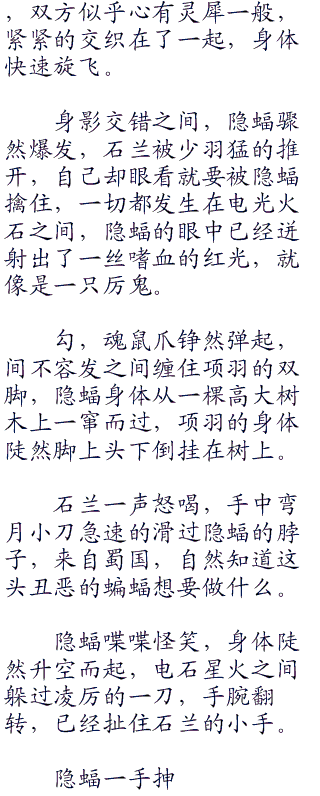 ，双方似乎心有灵犀一般，
紧紧的交织在了一起，身体
快速旋飞。
身影交错之间，隐蝠骤
然爆发，石兰被少羽猛的推
开，自己却眼看就要被隐蝠
擒住，一切都发生在电光火
石之间，隐蝠的眼中已经迸
射出了一丝嗜血的红光，就
像是一只厉鬼。
勾，魂鼠爪铮然弹起，
间不容发之间缠住项羽的双
脚，隐蝠身体从一棵高大树
木上一窜而过，项羽的身体
陡然脚上头下倒挂在树上。
石兰一声怒喝，手中弯
月小刀急速的滑过隐蝠的脖
子，来自蜀国，自然知道这
头丑恶的蝙蝠想要做什么。
隐蝠喋喋怪笑，身体陡
然升空而起，电石星火之间
躲过凌厉的一刀，手腕翻
转，已经扯住石兰的小手。
隐蝠一手抻